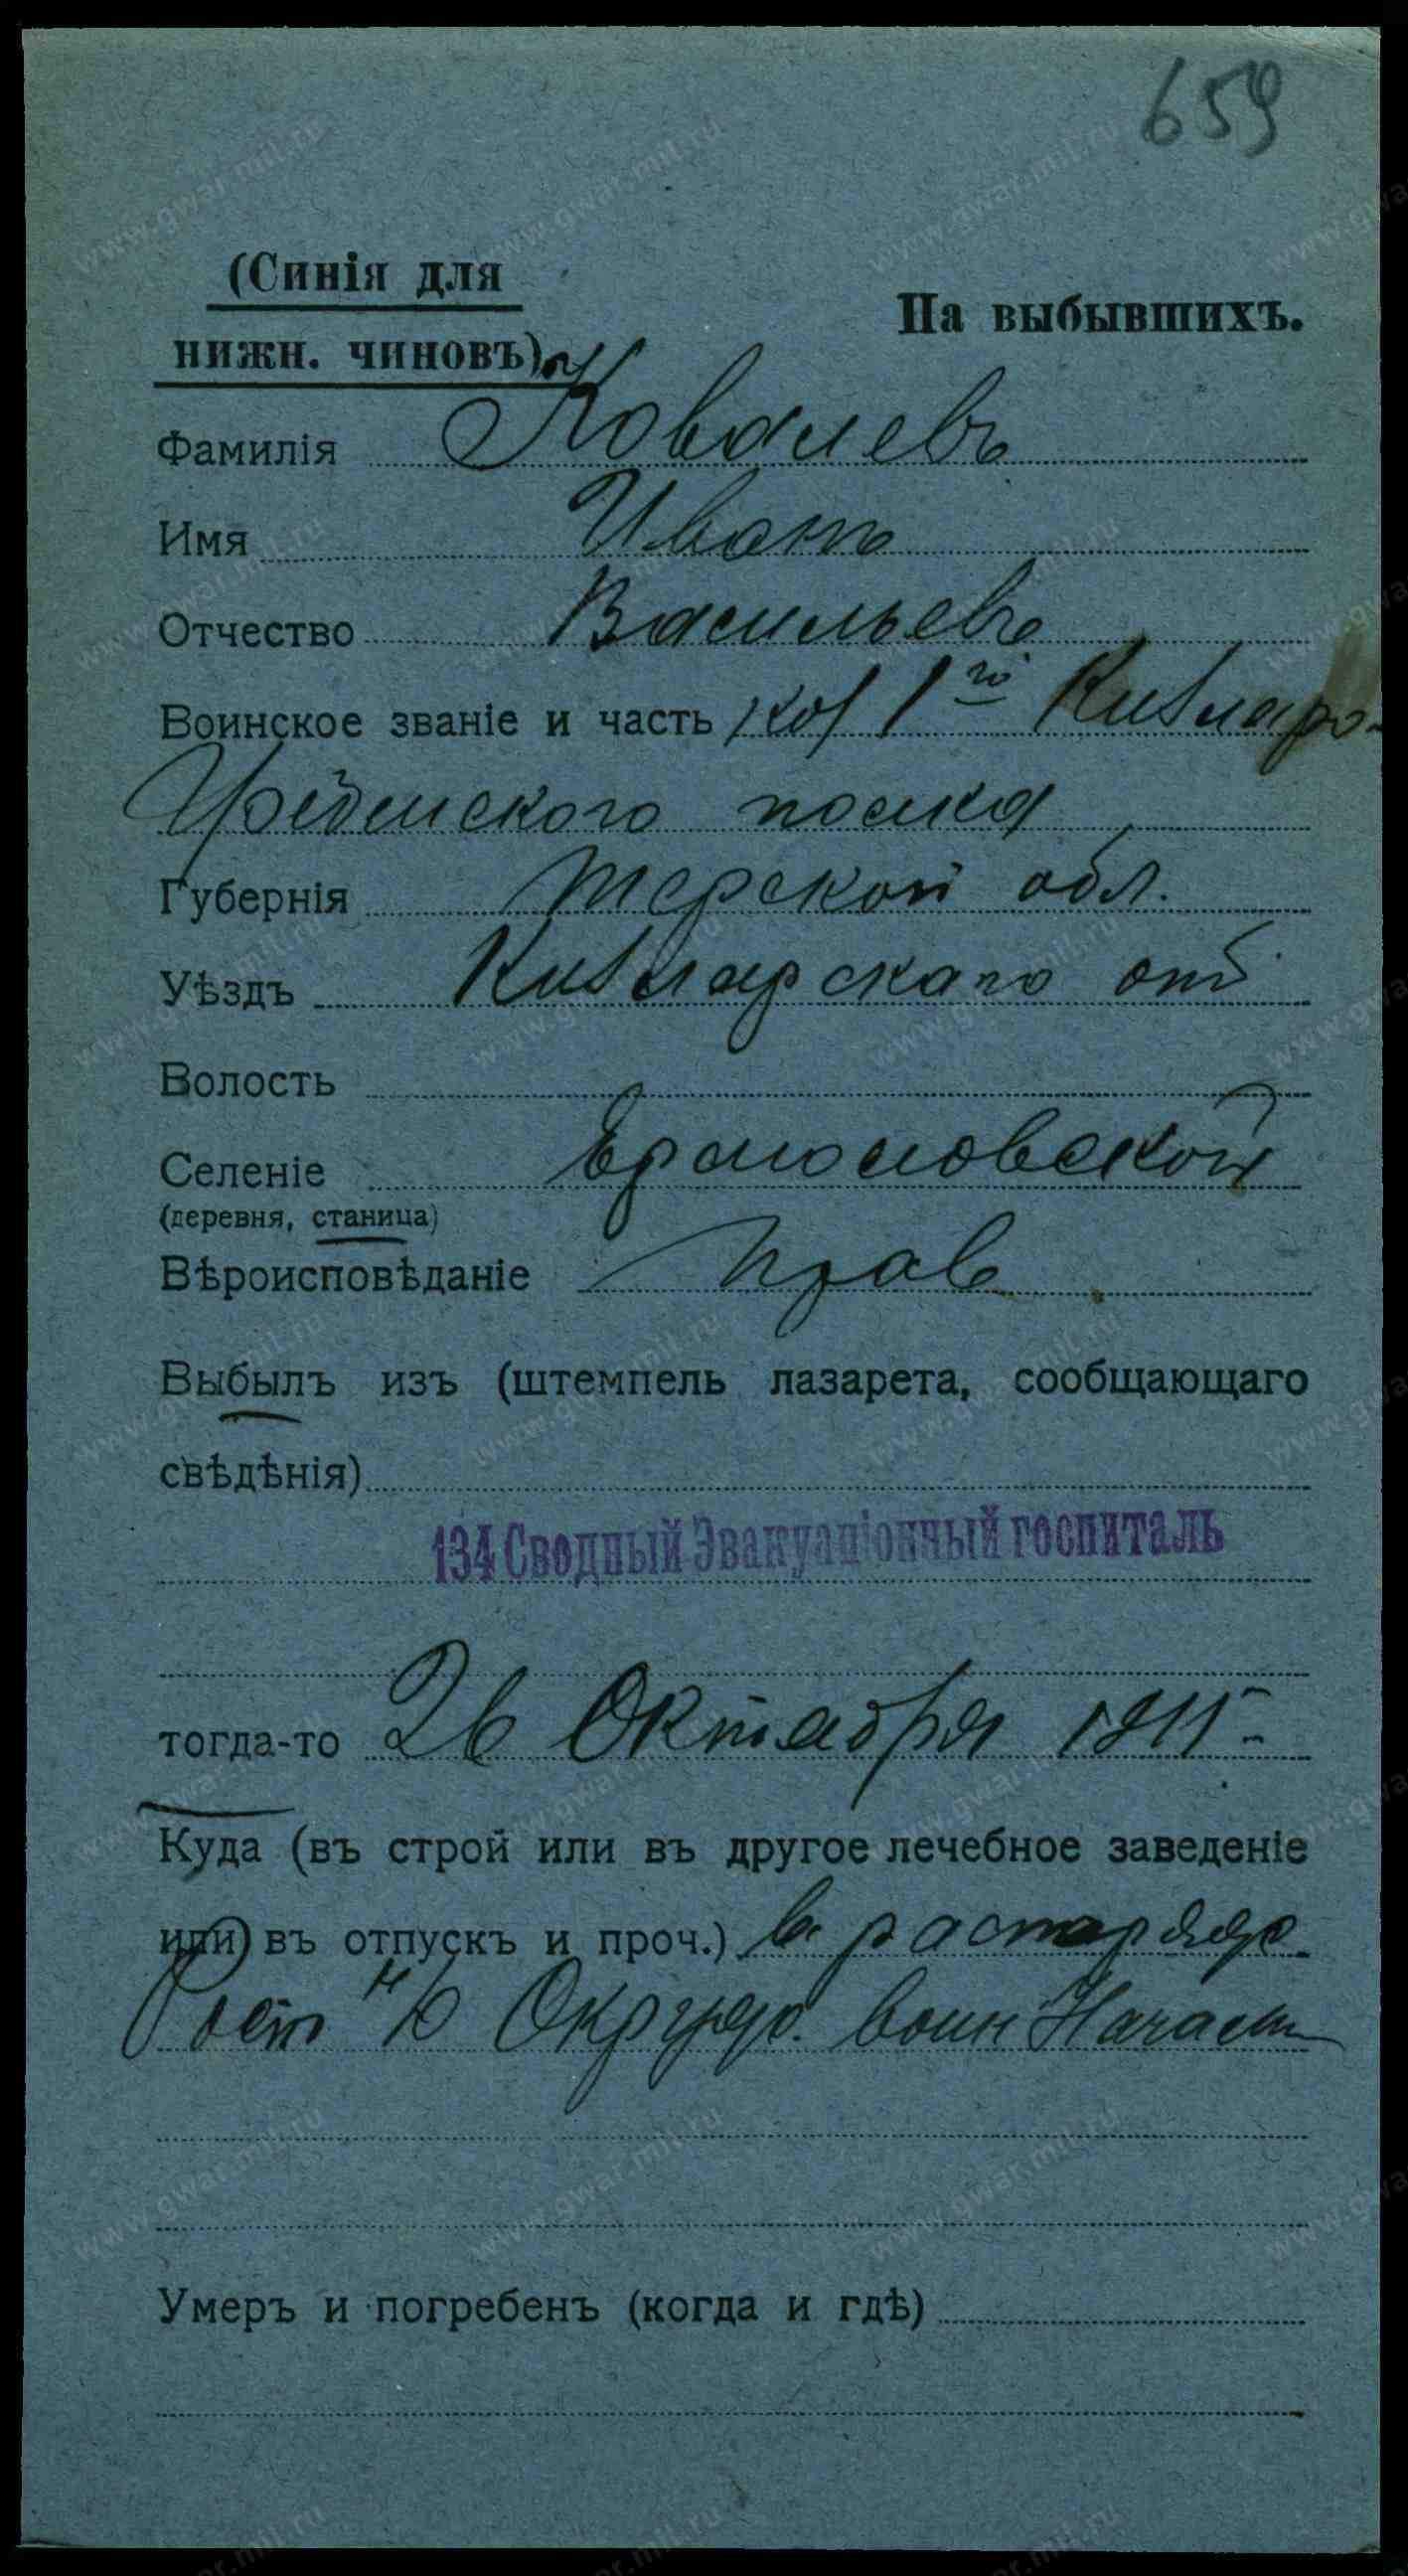 659
(Синія для
На выбывшихъ.
нижн. чиновъ)
Фамилія Ковалевъ
Имя Иванъ
Отчество Васильевъ
Воинское званіе и часть каз 1го Кизляро-
Гребенского полка
Губернія Терской обл.
Уѣздъ Кизлярскаго отд
Волость
Селеніе Ермоловской
(деревня, станица)
Вѣроисповѣданіе Прав
Выбылъ изъ (штемпель лазарета, сообщающаго
свѣдѣнія)
134 Сводный Эвакуаціонный госпиталь
тогда-то 26 Октября 1915
Куда (въ строй или въ другое лечебное заведеніе
или въ отпускъ и проч.) в распоряж
Рост н/Д Окружн. воин Начальн
Умеръ и погребенъ (когда и гдѣ)